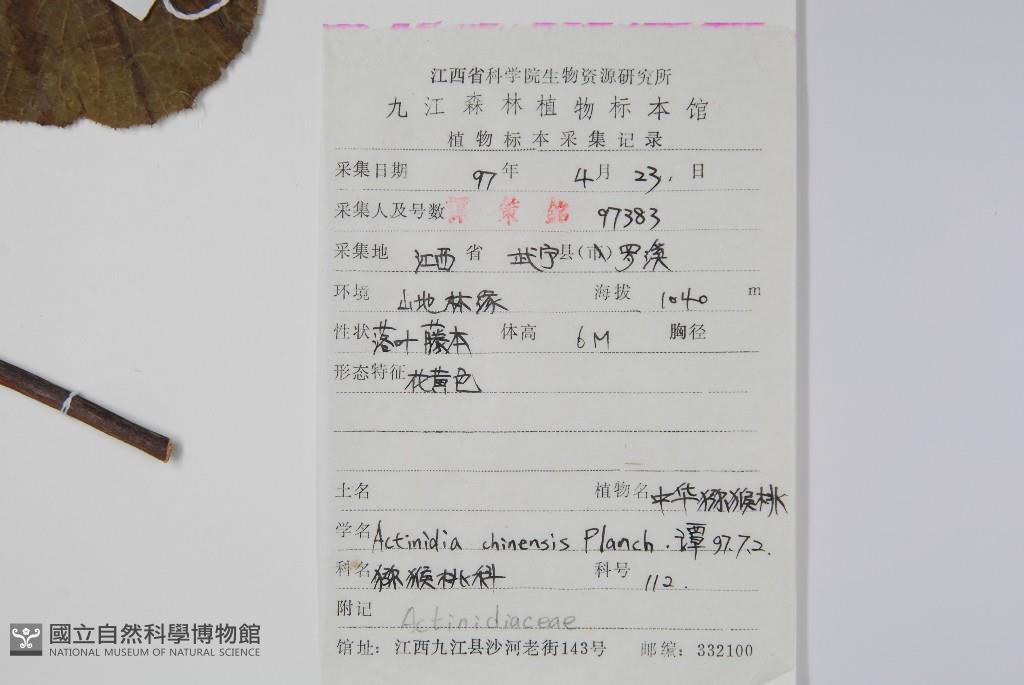 江西省科学院生物资源研究所
九江森林植物标本馆
植物标本采集记录
采集日期 97年 4月 23. 日
采集人及号数 谭策铭 97383
采集地 江西 省 武宁县(市) 罗溪
环境 山地林缘 海拔 1040 m
性状 落叶藤本 体高 6M 胸径
形态特征 花黄色
土名 植物名 中华猕猴桃
学名 Actinidia chinensis Planch. 谭 97.7.2.
科名 猕猴桃科 科号 112.
附记 Actinidiaceae
馆址: 江西九江县沙河老街143号 邮编: 332100
國立自然科學博物館
NATIONAL MUSEUM OF NATURAL SCIENCE